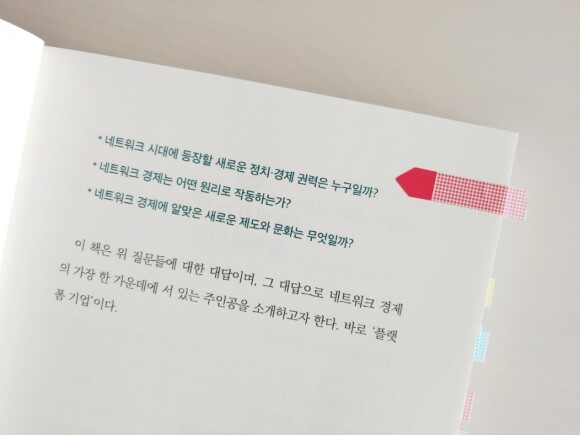 * 네트워크 시대에 등장할 새로운 정치·경제 권력은 누구일까?
* 네트워크 경제는 어떤 원리로 작동하는가?
* 네트워크 경제에 알맞은 새로운 제도와 문화는 무엇일까?
이 책은 위 질문들에 대한 대답이며, 그 대답으로 네트워크 경제
의 가장 한 가운데에 서 있는 주인공을 소개하고자 한다. 바로 ‘플랫
폼 기업’이다.